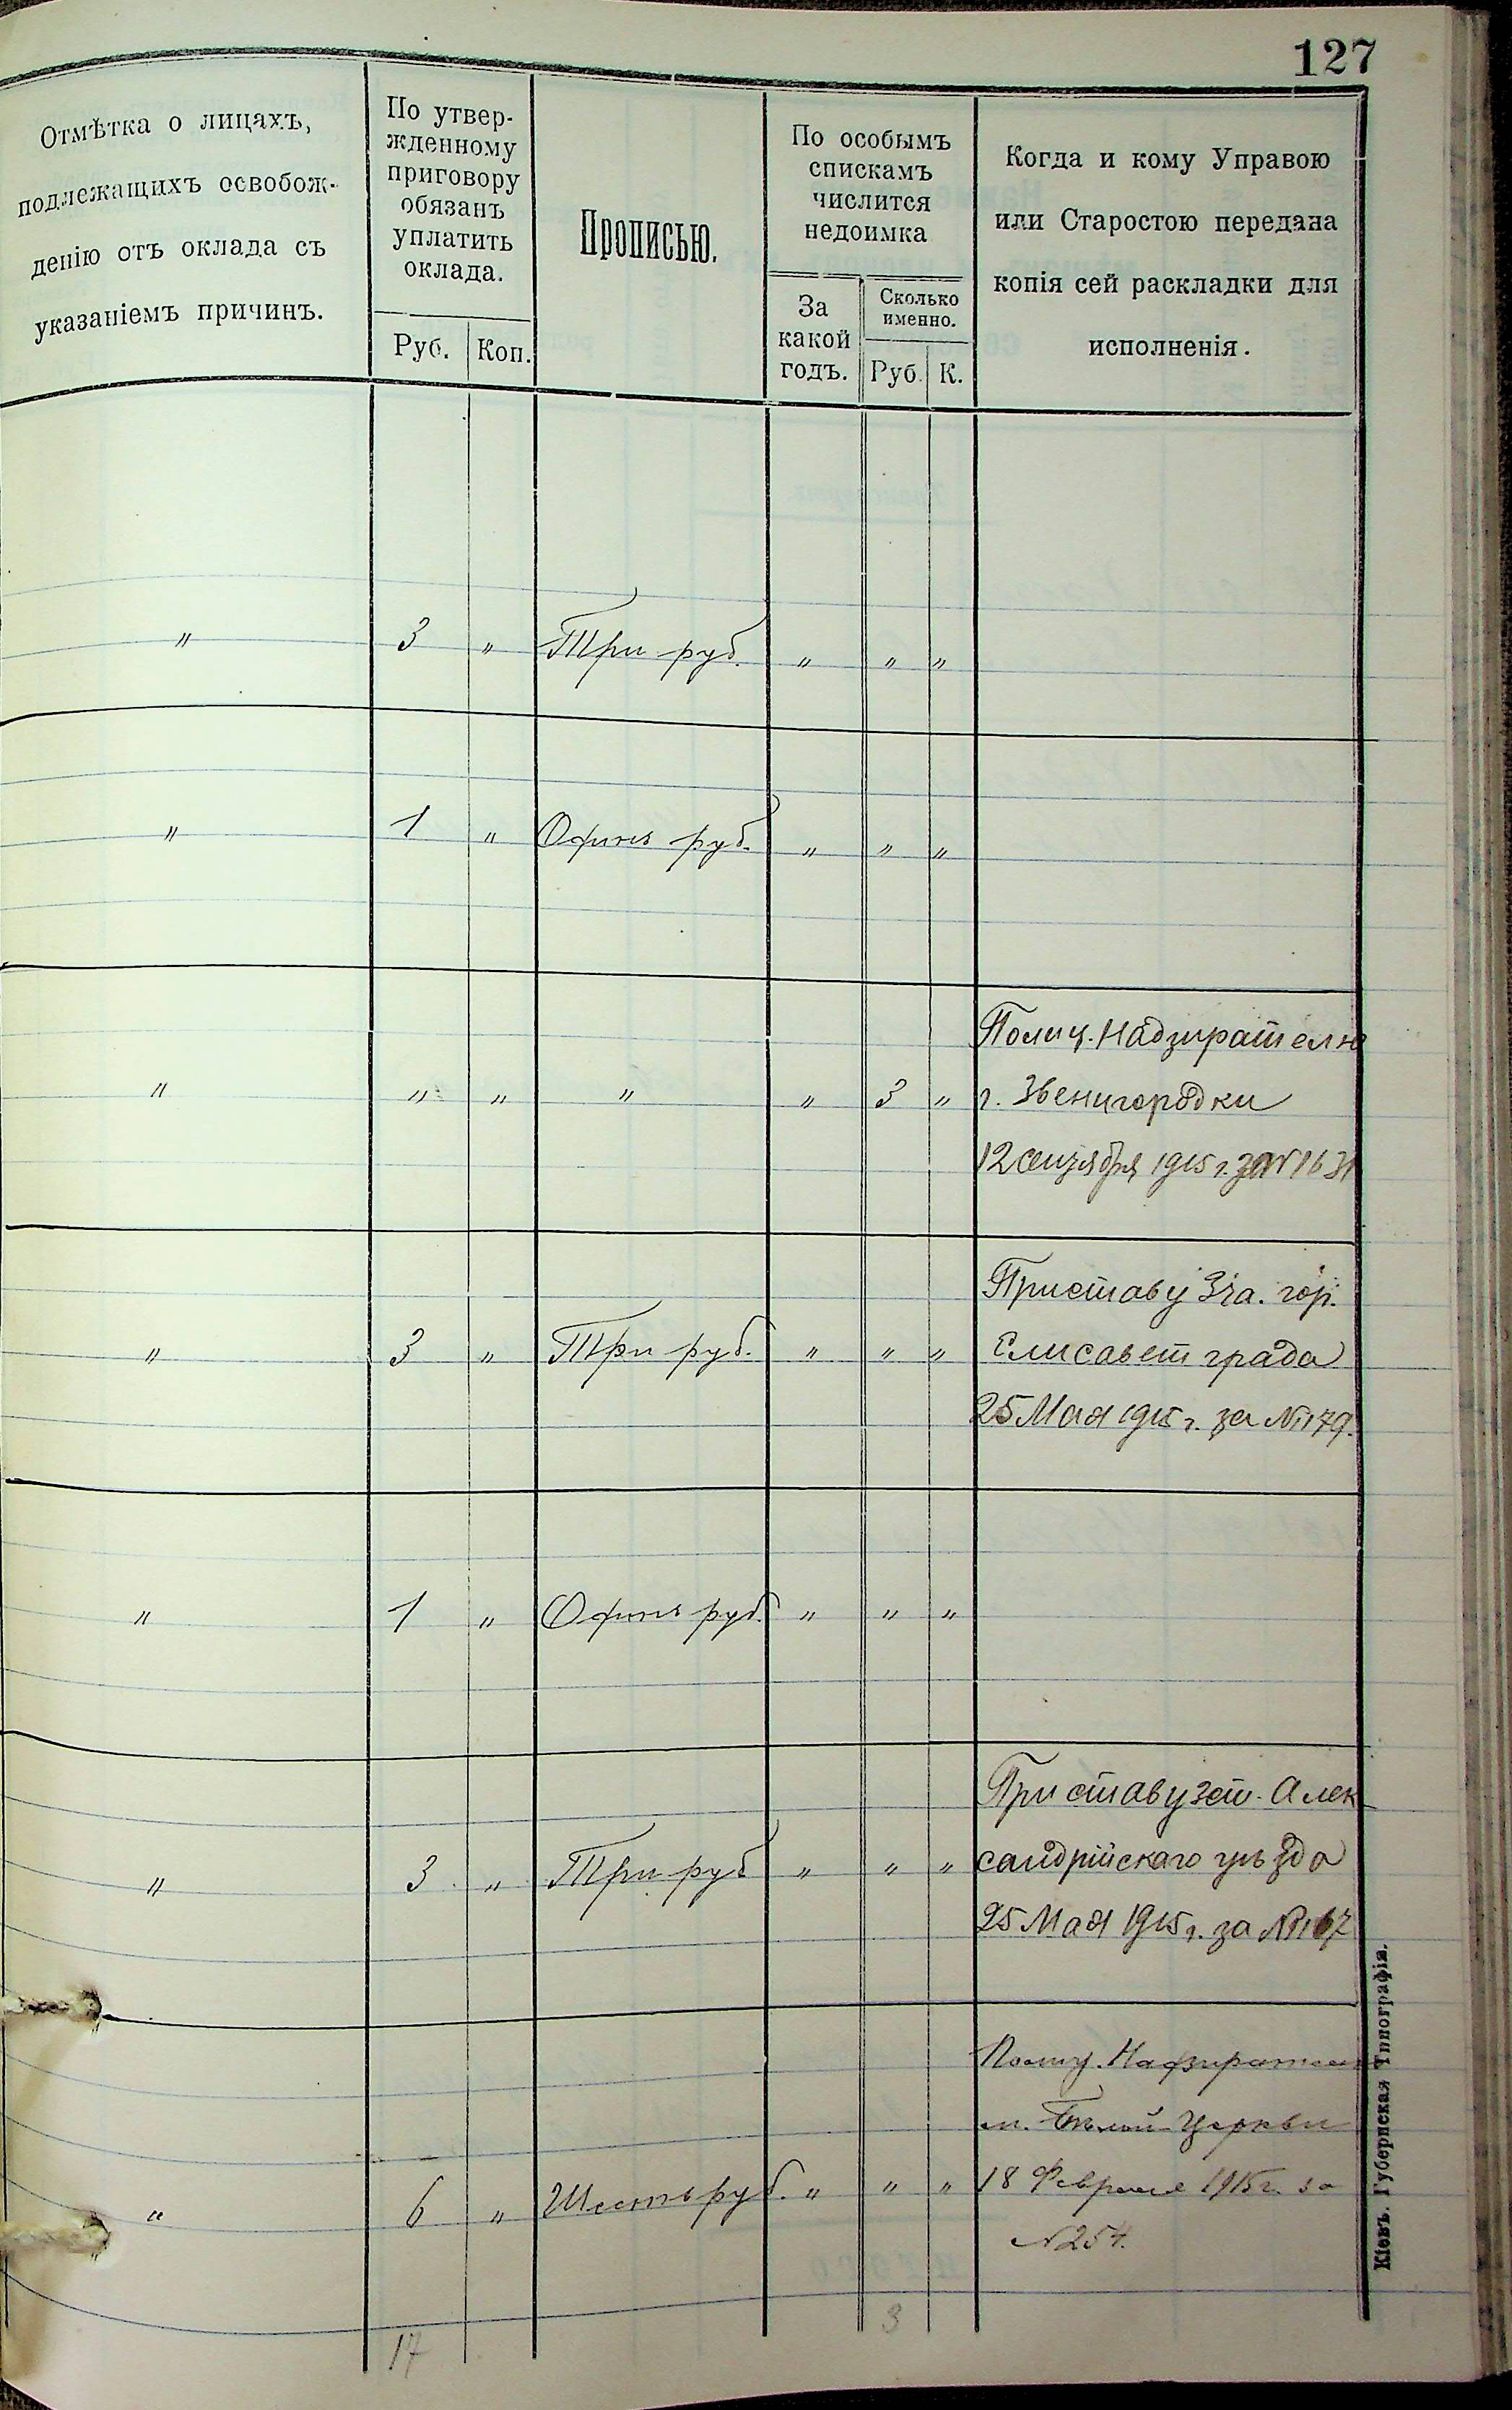 127
Отмѣтка о лицахъ,
подлежащихъ освобож-
денію отъ оклада съ
указаніемъ причинъ.
По утвер-
жденному
приговору
обязанъ
уплатить
оклада.
Руб. Коп.
Прописью.
По особымъ
спискамъ
числится
недоимка
За
какой
годъ.
Сколько
именно.
Руб. К.
Когда и кому Управою
или Старостою передана
копія сей раскладки для
исполненія.
" 3 " Три руб. " " "
" 1 " Одинъ руб. " " "
Полиц. Надзирателю
" " " " " 3 " г. Звенигородки
12 сентября 1915 г. за № 1631
Приставу 3 ча. гор.
" 3 " Три руб. " " " Елисаветграда
25 Мая 1915 г. за № 1179.
" 1 " Одинъ руб. " " "
Приставу 3 ст. Алек
" 3 " Три руб " " " сандрійскаго уѣзда
25 Мая 1915 г. за № 1167
Полиц. Надзирателю
м. Бѣлой Церкви
" 6 " Шесть руб. " " " 18 Февраля 1915 г. за
№ 254.
17 3
Кіевъ. Губернская Типографія.